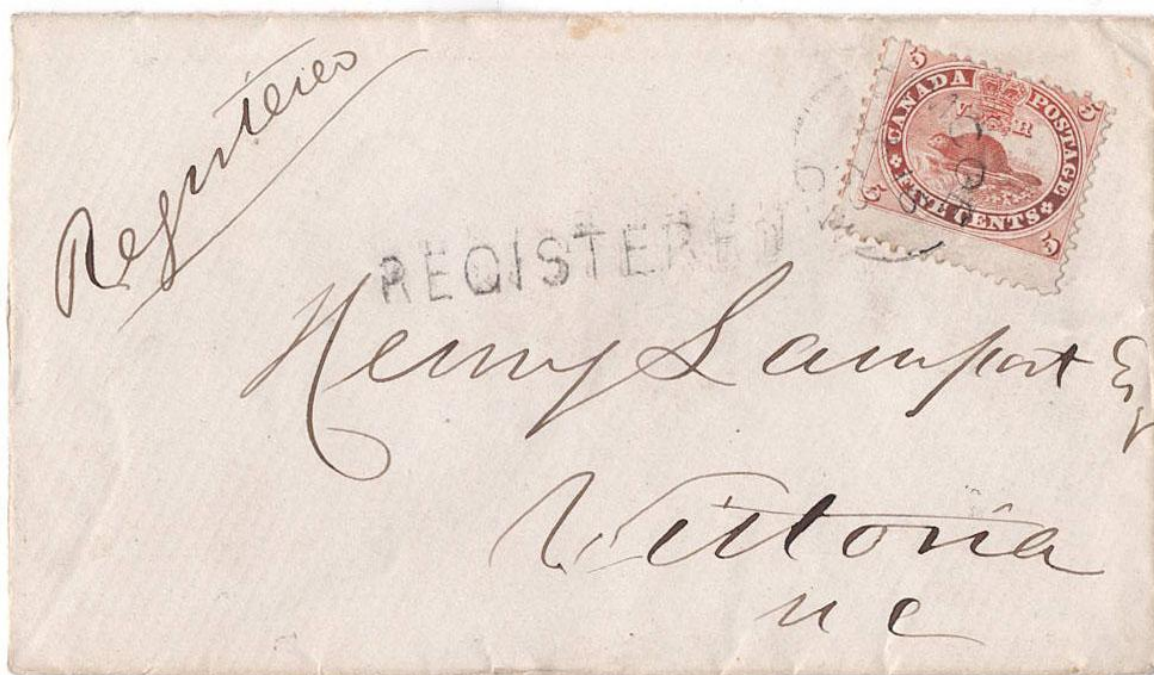 Registered
5 CANADA POSTAGE 5
V R
5 FIVE CENTS 5
REGISTERED
Henry Lamport Esq
Victoria
U C